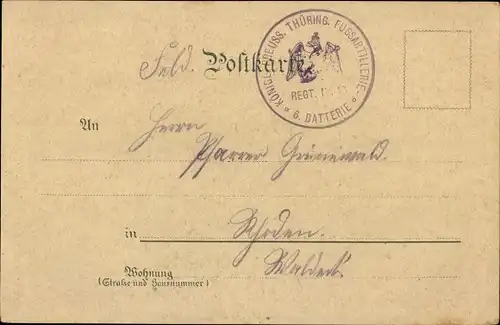 Feld. Postkarte
KÖNIGL. PREUSS. THÜRING. FUSSARTILLERIE-
REGT.
* 6. BATTERIE *
An Herrn
Pfarrer Grünewald.
in Rhoden.
Waldeck.
Wohnung
(Straße und Hausnummer)